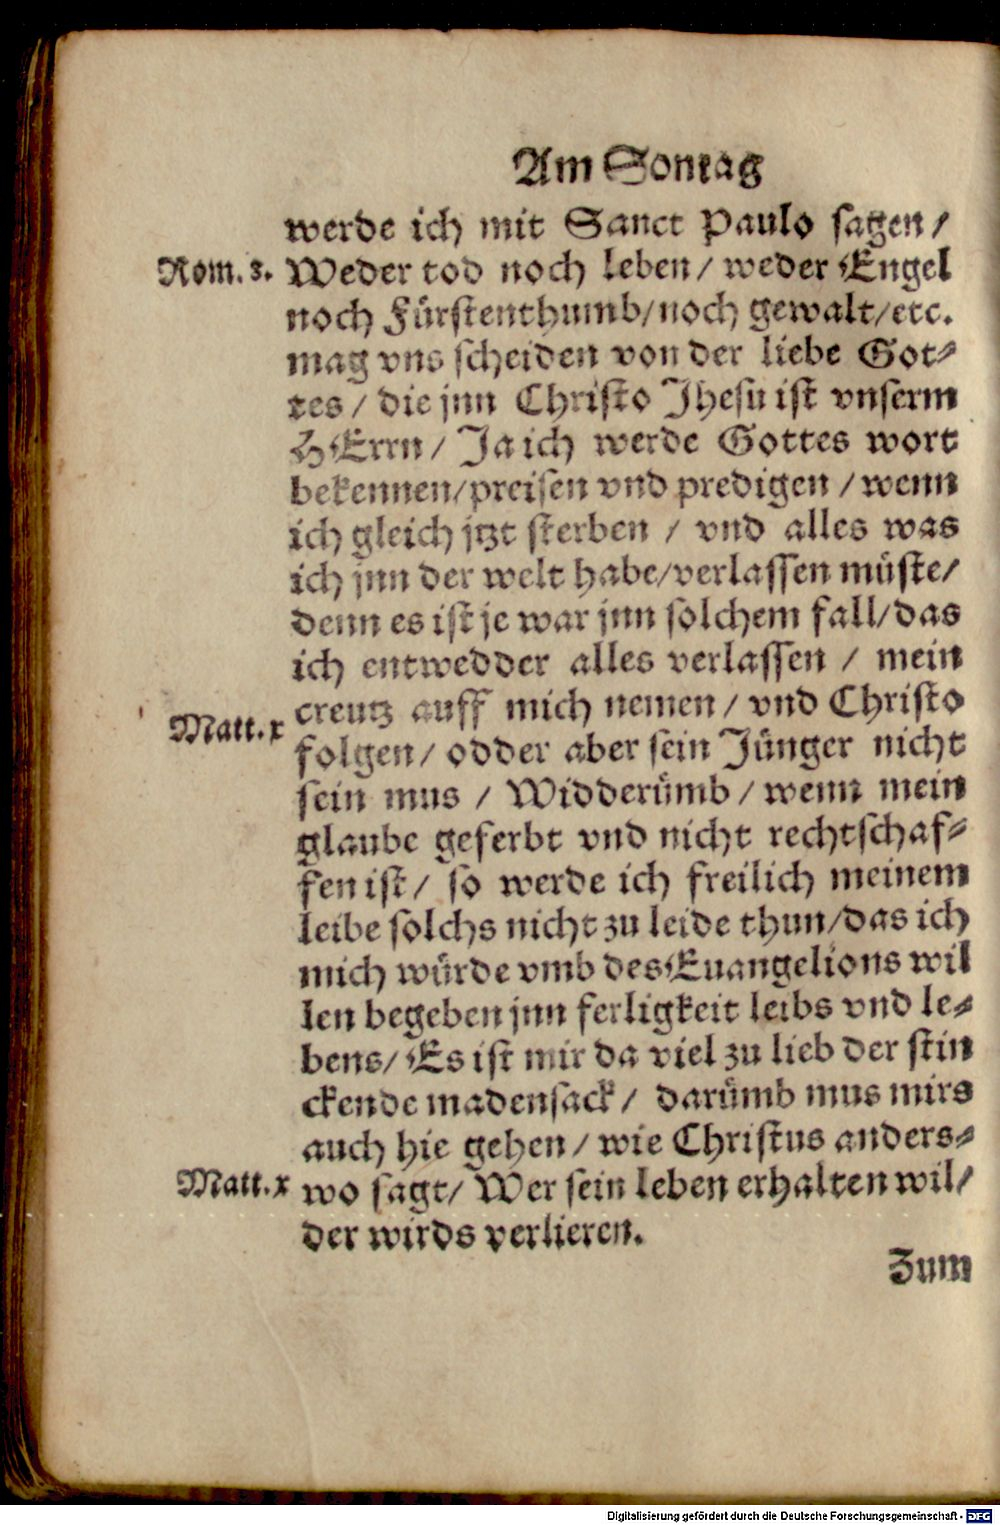 Am Sontag
werde ich mit Sanct Paulo sagen /
Rom. 8. Weder tod noch leben / weder Engel
noch Fürstenthumb/noch gewalt/etc.
mag vns scheiden von der liebe Got-
tes / die jnn Christo Jhesu ist vnserm
HErrn / Ja ich werde Gottes wort
bekennen/preisen vnd predigen / wenn
ich gleich jtzt sterben / vnd alles was
ich jnn der welt habe/verlassen müste/
denn es ist je war jnn solchem fall/das
ich entwedder alles verlassen / mein
creutz auff mich nemen / vnd Christo
Matt.x
folgen / odder aber sein Jünger nicht
sein mus / Widderümb / wenn mein
glaube geferbt vnd nicht rechtschaf-
fen ist / so werde ich freilich meinem
leibe solchs nicht zu leide thun/das ich
mich würde vmb des Euangelions wil
len begeben jnn ferligkeit leibs vnd le-
bens/ Es ist mir da viel zu lieb der stin
ckende madensack / darümb mus mirs
auch hie gehen / wie Christus anders-
Matt.x wo sagt/ Wer sein leben erhalten wil/
der wirds verlieren.
Zum
Digitalisierung gefördert durch die Deutsche Forschungsgemeinschaft - DFG